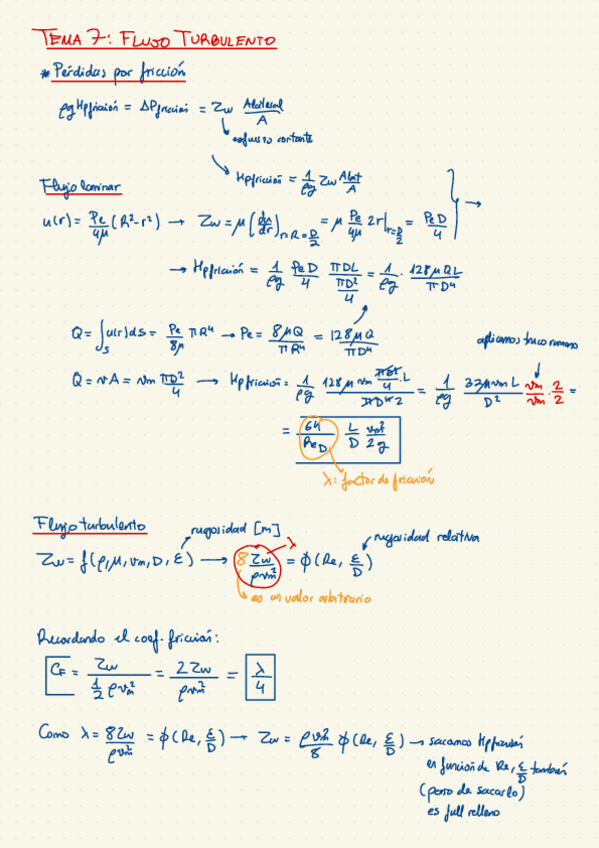 TEMA 7: FLUJO TURBULENTO
* Pérdidas por fricción
ρg Hpfricción = ΔPfricción = Zw Alateral/A
esfuerzo cortante
Hpfricción = 1/ρg Zw Alat/A
Flujo laminar
u(r) = Pe/4μ (R²-r²) → Zw = μ (du/dr) r=R=D/2 = μ Pe/4μ 2r| r=D/2 = Pe D/4 →
→ Hpfricción = 1/ρg PeD/4 πDL/(πD²/4) = 1/ρg · 128μQL/πD⁴
Q = ∫s u(r)ds = Pe/8μ πR⁴ → Pe = 8μQ/πR⁴ = 128μQ/πD⁴
aplicamos truco rumano
Q = vA = vm πD²/4 → Hpfricción = 1/ρg 128μ vm πD²/4 · L/πD⁴2 = 1/ρg 32μvm L/D² vm/vm · 2/2 =
= 64/ReD L/D vm²/2g
λ: factor de fricción
Flujo turbulento
rugosidad [m]
rugosidad relativa
Zw = f(ρ, μ, vm, D, ε) → 8 Zw/ρvm² = φ(Re, ε/D)
λ
es un valor arbitrario
Recordando el coef. fricción:
CF = Zw/(1/2 ρvm²) = 2Zw/ρvm² = λ/4
Como λ = 8Zw/ρvm² = φ(Re, ε/D) → Zw = ρvm²/8 φ(Re, ε/D) → sacamos Hpfricción
en función de Re, ε/D también
(paso de sacarlo)
es full relleno